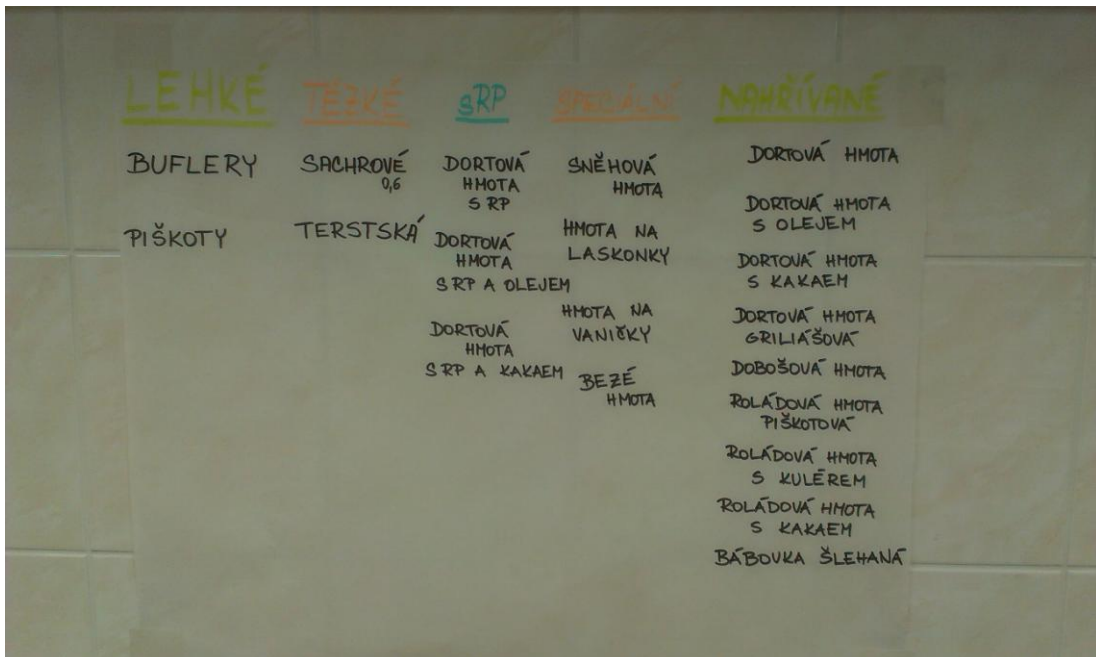 LEHKÉ
BUFLERY
PIŠKOTY
TĚŽKÉ
SACHROVÉ
0,6
TERSTSKÁ
sRP
DORTOVÁ
HMOTA
S RP
DORTOVÁ
HMOTA
S RP A OLEJEM
DORTOVÁ
HMOTA
S RP A KAKAEM
SPECIÁLNÍ
SNĚHOVÁ
HMOTA
HMOTA NA
LASKONKY
HMOTA NA
VANIČKY
BEZÉ
HMOTA
NAHŘÍVANÉ
DORTOVÁ HMOTA
DORTOVÁ HMOTA
S OLEJEM
DORTOVÁ HMOTA
S KAKAEM
DORTOVÁ HMOTA
GRILIÁŠOVÁ
DOBOŠOVÁ HMOTA
ROLÁDOVÁ HMOTA
PIŠKOTOVÁ
ROLÁDOVÁ HMOTA
S KULÉREM
ROLÁDOVÁ HMOTA
S KAKAEM
BÁBOVKA ŠLEHANÁ